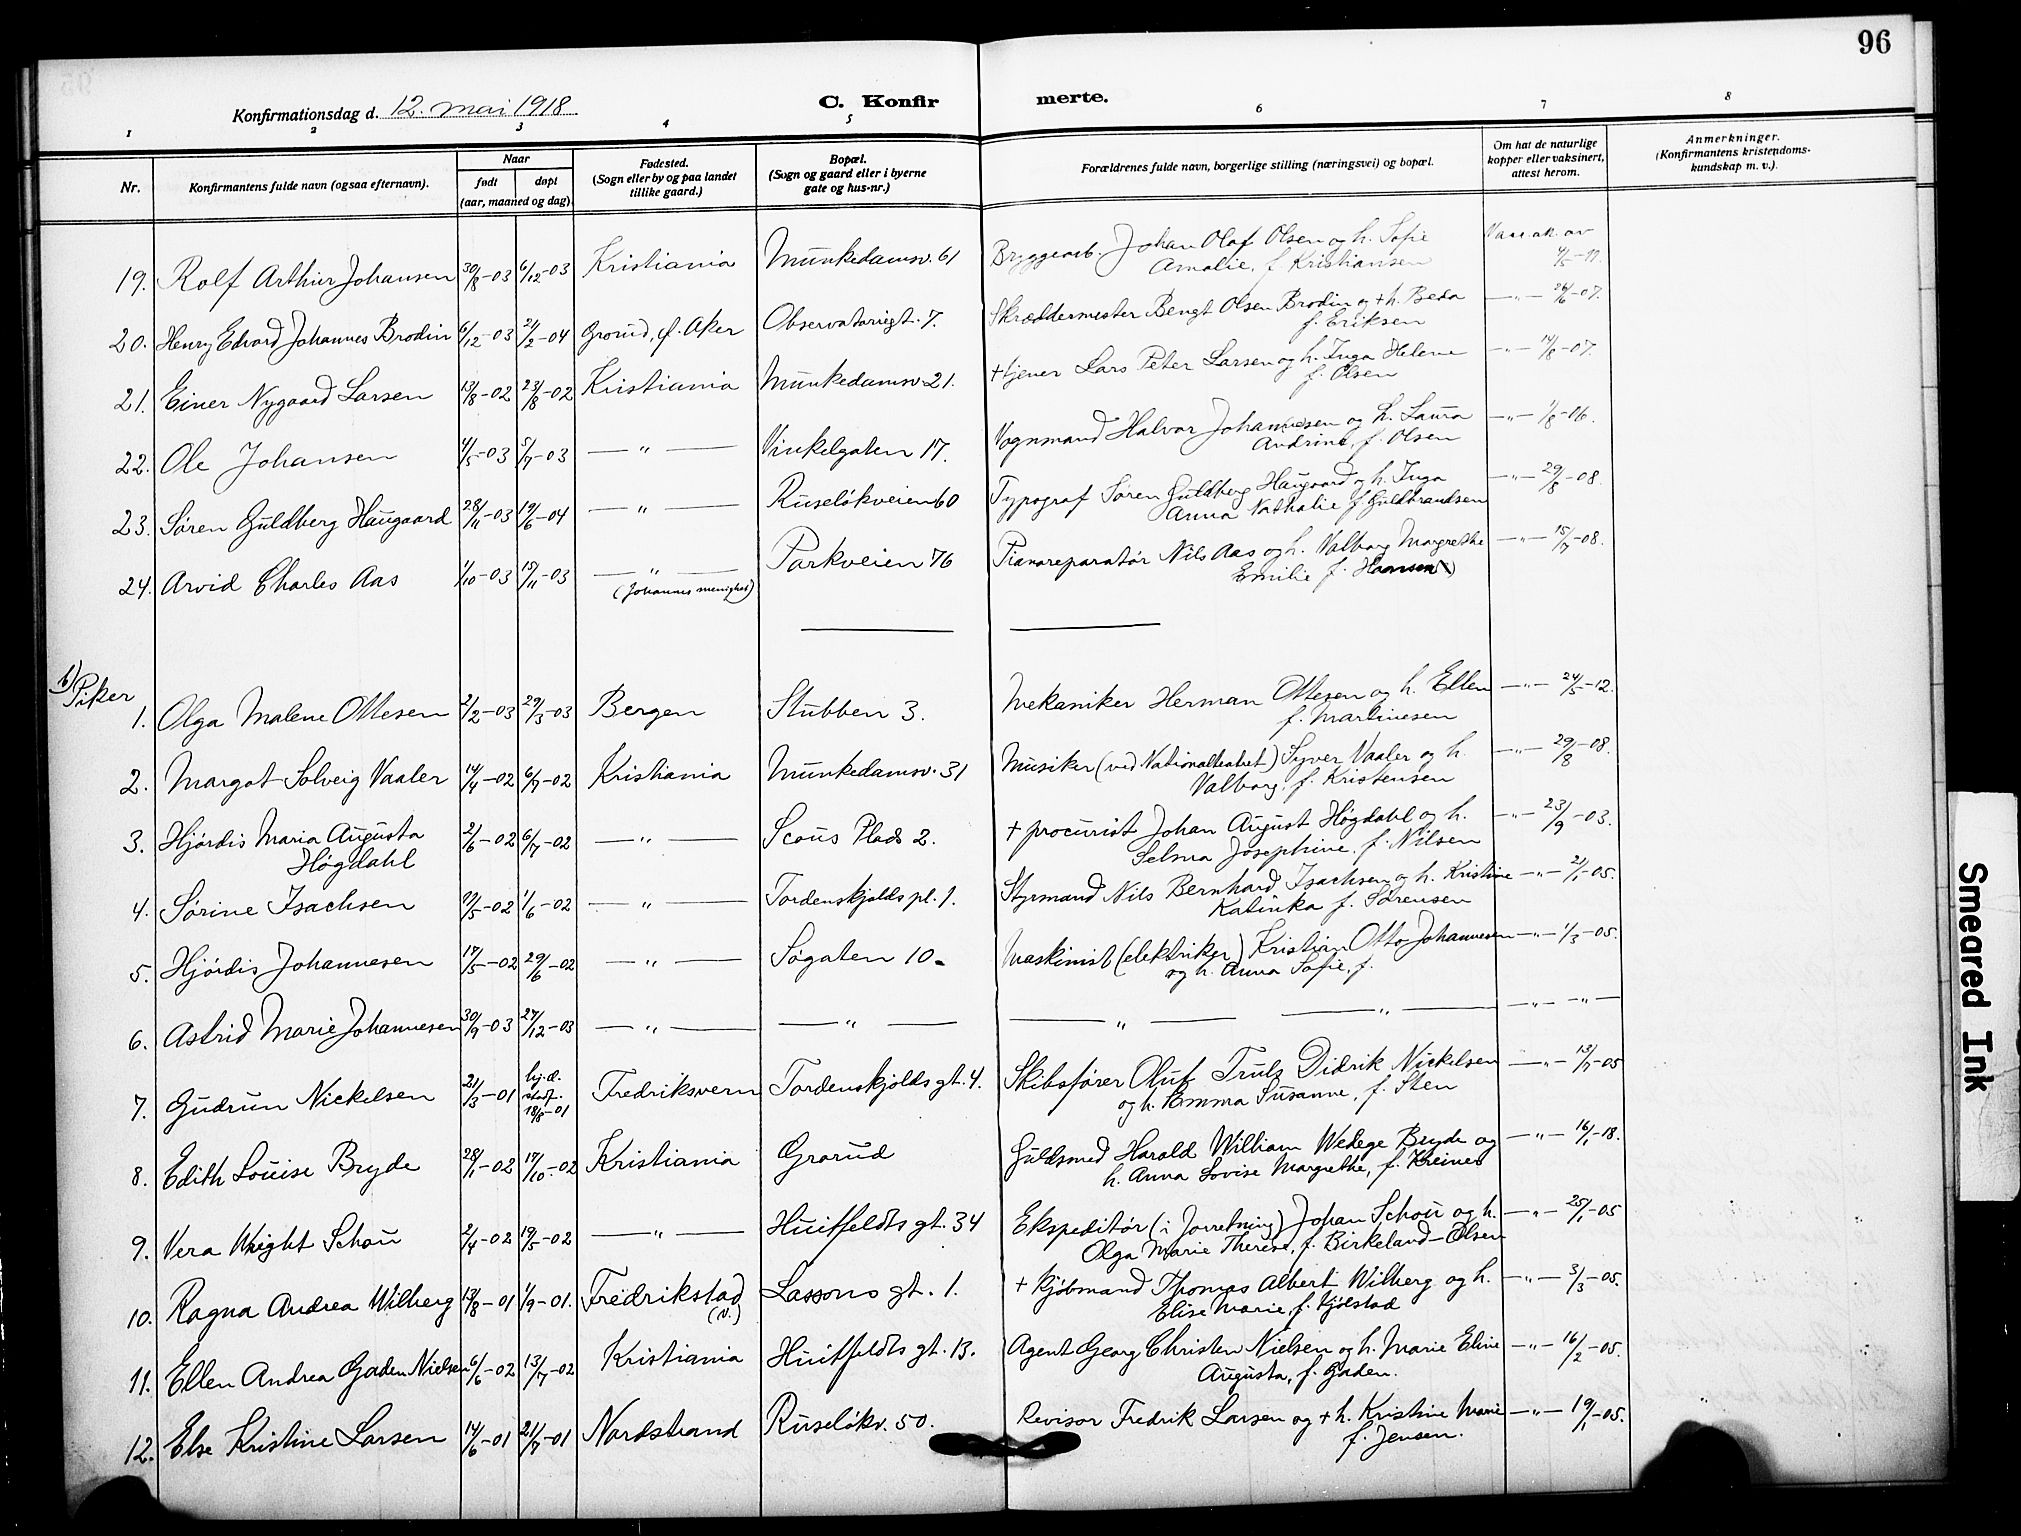 96
Konfirmationsdag d. 12. mai 1918
C. Konfirmerte.
1 2 3 4 5 6 7 8
Nr.
Konfirmantens fulde navn (ogsaa efternavn).
Naar
født døpt
(aar, maaned og dag).
Fødested.
(Sogn eller by og paa landet
tillike gaard.)
Bopæl.
(Sogn og gaard eller i byerne
gate og hus-nr.)
Forældrenes fulde navn, borgerlige stilling (næringsvei) og bopæl.
Om hat de naturlige
kopper eller vaksinert,
attest herom.
Anmerkninger.
(Konfirmantens kristendoms-
kundskap m. v.).
19. Rolf Arthur Johansen 30/8-03 6/12-03 Kristiania Munkedamsv. 61 Bryggearb. Johan Olaf Olsen og h. Sofie
Amalie, f. Kristiansen
20. Henry Edvard Johannes Brodin 6/12-03 21/2-04 Grorud, Ø. Aker Observatoriegt. 7. Skræddermester Bengt Olsen Brodin og + h. Beda —"— 26/6-07.
f. Eriksen
21. Einer Nygaard Larsen 13/8-02 23/8-02 Kristiania Munkedamsv. 21. + tjener Lars Peter Larsen og h. Inga Helene —"— 14/8-07.
f. Olsen
22. Ole Johansen 4/5-03 5/7-03 —"— Vinkelgaten 17. Vognmand Halvor Johannesen og h. Laura —"— 1/8-06.
Andrine, f. Olsen
23. Søren Guldberg Haugaard 28/11-03 19/6-04 —"— Ruseløkveien 60 Typograf Søren Guldberg Haugaard og h. Inga —"— 29/8-08.
Anna Nathalie f. Guldbrandsen
24. Arvid Charles Aas 1/10-03 15/11-03 —"— Parkveien 76 Pianoreparatør Nils Aas og h. Valborg Margrethe —"— 15/7-08.
(Johannes menighet) Emilie f. Hansen
b) Piker
1. Olga Malene Ottesen 2/2-03 29/3-03 Bergen Stubben 3. Mekaniker Herman Ottesen og h. Ellen —"— 24/5-12.
f. Martinesen
2. Margot Solveig Vaaler 14/4-02 6/7-02 Kristiania Munkedamsv. 31 Musiker (ved Nationalteatret) Syver Vaaler og h. —"— 29/8-08.
Valborg, f. Kristensen
3. Hjørdis Maria Augusta 2/6-02 6/7-02 —"— Scous Plads 2. + procurist Johan August Høgdahl og h. —"— 23/9-03.
Høgdahl Selma Josephine, f. Nilsen
4. Sørine Isachsen /5-02 1/6-02 —"— Tordenskjolds pl. 1. Styrmand Nils Bernhard Isachsen og h. Kristine —"— 21/1-05.
Katinka f. Sørensen
5. Hjørdis Johannesen 17/5-02 29/6-02 —"— Søgaten 10. Maskinist (elektriker) Kristian Otto Johannesen —"— 1/3-05.
og h. Anna Sofie, f.
6. Astrid Marie Johannesen 30/9-03 27/12-03 —"— —"— —"— —"— —"— —"—
7. Gudrun Nickelsen 21/3-01 hj.d. Fredriksvern Tordenskjolds gt. 4. Skibsfører Oluf Truls Didrik Nickelsen —"— 13/7-05
stadf.
18/8-01 og h. Emma Susanne, f. Sten
8. Edith Louise Bryde 28/1-02 17/10-02 Kristiania Grorud Guldsmed Harald William Wedege Bryde og —"— 16/1-18.
h. Anna Lovise Margrethe, f. Kreiner
9. Vera Wright Schou 2/4-02 19/5-02 —"— Huitfeldts gt. 34 Ekspeditør (i forretning) Johan Schou og h. —"— 25/1-05
Olga Marie Therese, f. Birkeland-Olsen
10. Ragna Andrea Wilberg 13/8-01 1/9-01. Fredrikstad Lassons gt. 1. + kjøbmand Thomas Albert Wilberg og h. —"— 3/3-05.
(V.) Elise Marie, f. Kjølstad
11. Ellen Andrea Gaden Nielsen 6/6-02 13/7-02 Kristiania Huitfeldts gt. 13. Agent Georg Christen Nielsen og h. Marie Eline —"— 16/2-05.
Augusta, f. Gaden.
12. Else Kristine Larsen 14/6-01 21/7-01 Nordstrand Ruseløkv. 50. Revisor Fredrik Larsen og + h. Kristine Marie —"— 19/1-05.
f. Jensen.
Smeared Ink